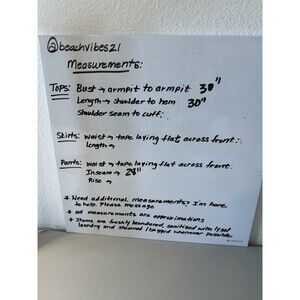 @beachvibes21
Measurements:
Tops: Bust → armpit to armpit 30"
Length → shoulder to hem 30"
Shoulder seam to cuff:
Skirts: Waist → tape laying flat across front:
Length →
Pants: Waist → tape laying flat across front
Inseam → 29"
Rise →
* Need additional measurements? I'm here
to help. Please message
* all measurements are approximations
* Items are freshly laundered, sanitized with lysol
laundry and steamed / tagged whenever possible